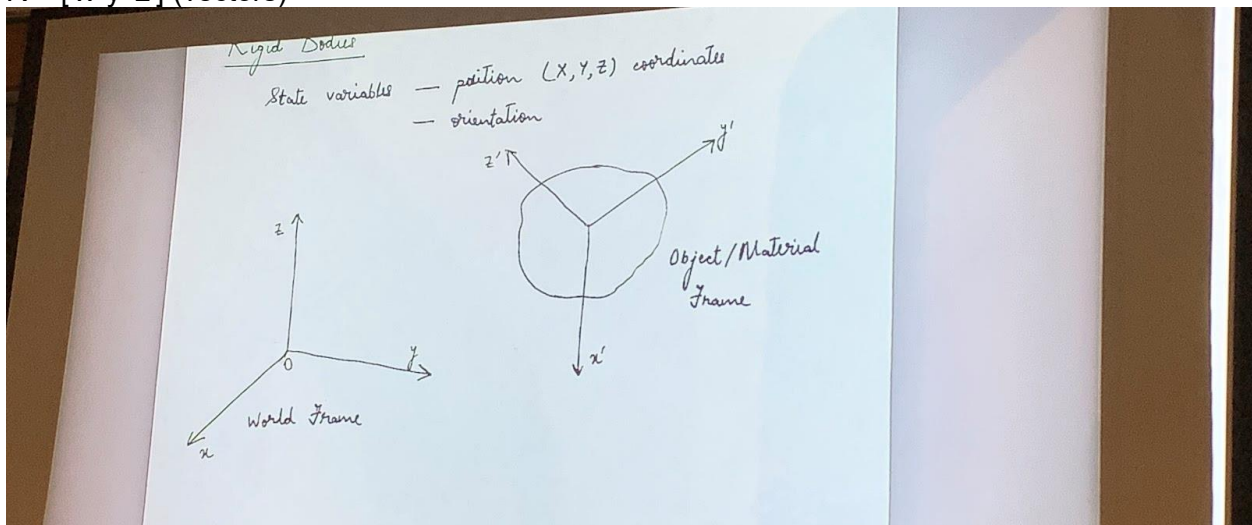 Rigid Bodies
State variables — position (X,Y,Z) coordinates
— orientation
z'
y'
z
Object/Material
Frame
x'
y
O
World Frame
x